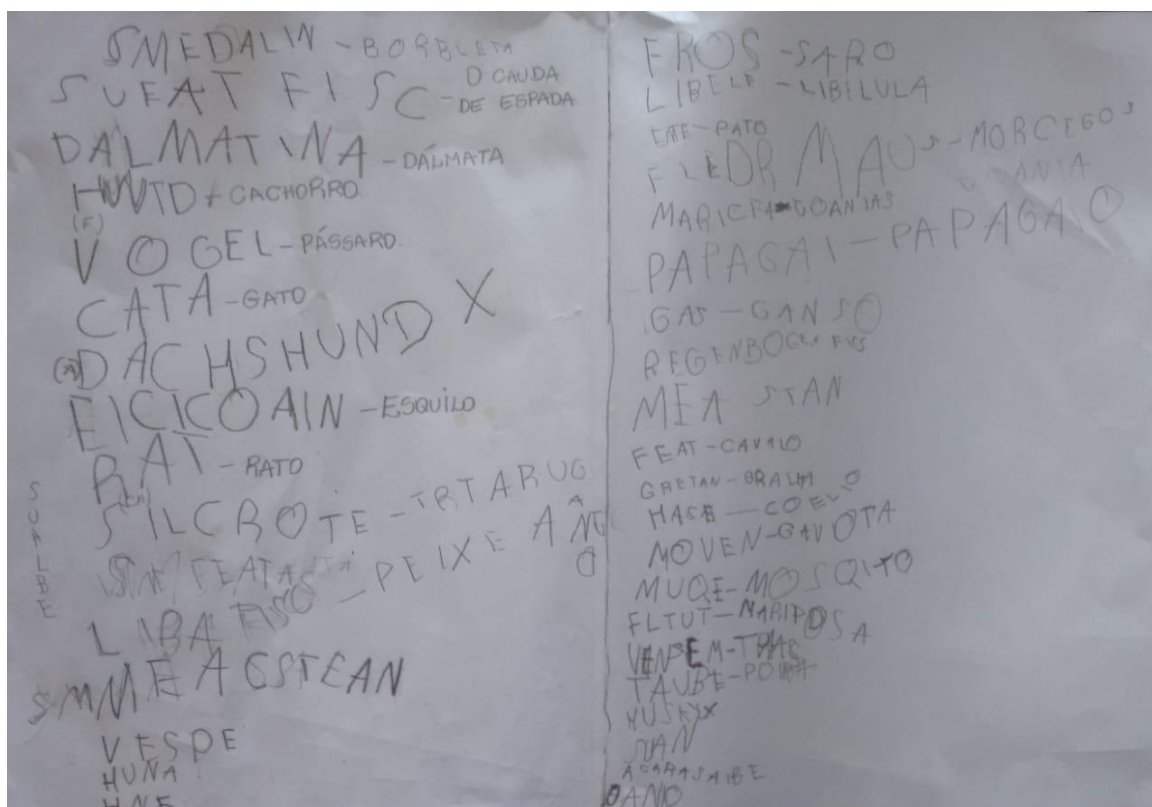 SMEDALIN - BORBLETA
SUEAT FISC - D CAUDA
DE ESPADA
DALMATINA - DÁLMATA
HUNTD + CACHORRO.
(F)
VOGEL - PÁSSARO.
CATA - GATO
(A) DACHSHUND X
EICICOAIN - ESQUILO
RAT - RATO
SILCROTE - TRTARUG
A
SUALBE
PEIXE ANJ
O
LABA
SMMEAGSTEAN
VESPE
HUNA
HNE
FROS - SARO
LIBELE - LIBELULA
ENTE - PATO
FLEDRMAUS - MORCEGOS
MARICFA - GOANIAS
PAPAGAI - PAPAGAIO
GAS - GANSO
REGENBOGU FUS
MEA STAN
FEAT - CAVALO
GRETAN - GRALHA
HASE - COELO
MOVEN - GAVOTA
MUQE - MOSQITO
FLTUT - MARIPOSA
TAUBE - POMA
HUSKYX
STAN
ACARASAIBE
DANIO